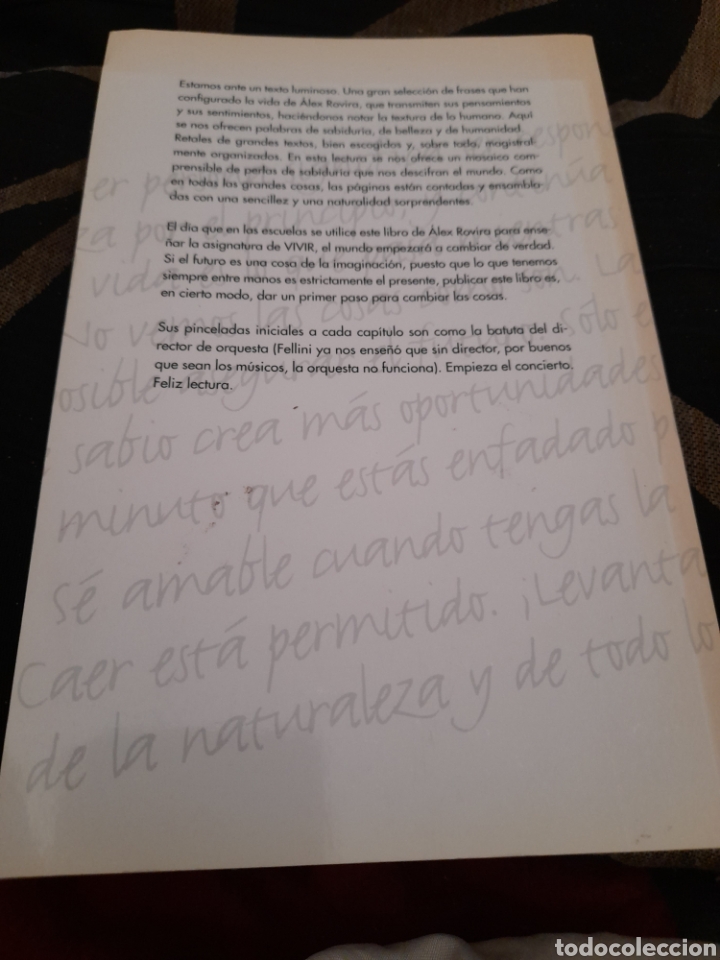 Estamos ante un texto luminoso. Una gran selección de frases que han
configurado la vida de Àlex Rovira, que transmiten sus pensamientos
y sus sentimientos, haciéndonos notar la textura de lo humano. Aquí
se nos ofrecen palabras de sabiduría, de belleza y de humanidad.
Retales de grandes textos, bien escogidos y, sobre todo, magistral-
mente organizados. En esta lectura se nos ofrece un mosaico com-
prensible de perlas de sabiduría que nos descifran el mundo. Como
en todas las grandes cosas, las páginas están contadas y ensambla-
das con una sencillez y una naturalidad sorprendentes.
El día que en las escuelas se utilice este libro de Àlex Rovira para ense-
ñar la asignatura de VIVIR, el mundo empezará a cambiar de verdad.
Si el futuro es una cosa de la imaginación, puesto que lo que tenemos
siempre entre manos es estrictamente el presente, publicar este libro es,
en cierto modo, dar un primer paso para cambiar las cosas.
Sus pinceladas iniciales a cada capítulo son como la batuta del di-
rector de orquesta (Fellini ya nos enseñó que sin director, por buenos
que sean los músicos, la orquesta no funciona). Empieza el concierto.
Feliz lectura.
espon
er
za por el principio, continúa
vida
No vemos las cosas son. La
osible asegurar el futuro. Sólo e
sabio crea más oportunidades
minuto que estás enfadado p
sé amable cuando tengas la
Caer está permitido. ¡Levanta
de la naturaleza y de todo lo
todocoleccion